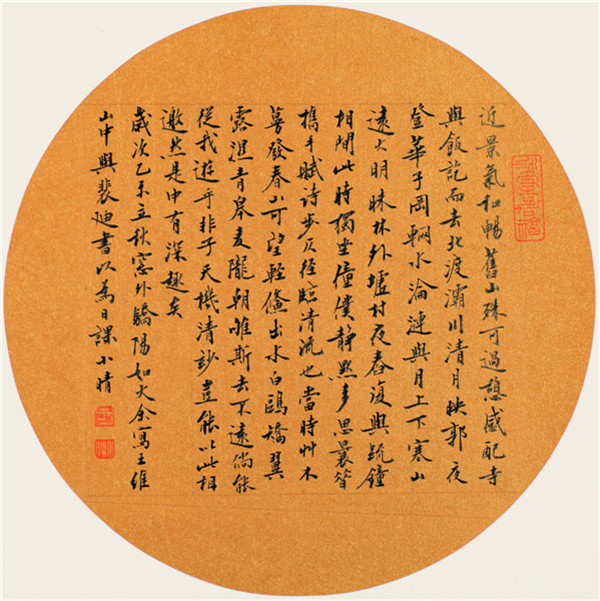 近景氣和暢舊山殊可過憩感配寺
與飯訖而去北渡灞川清月映郭夜
登華子岡輞水淪漣與月上下寒山
遠火明昧林外墟村夜舂復與疏鐘
相間此時獨坐僮僕靜默多思曩昔
攜手賦詩步仄徑臨清流也當時艸木
蔓發春山可望輕鯈出水白鷗矯翼
露濕青皋麥隴朝唯斯去不遠倘能
從我遊乎非子天機清妙豈能以此相
邀然是中有深趣矣
歲次乙未立秋窓外驕陽如火余寫王維
山中與裴迪書以為日課小晴